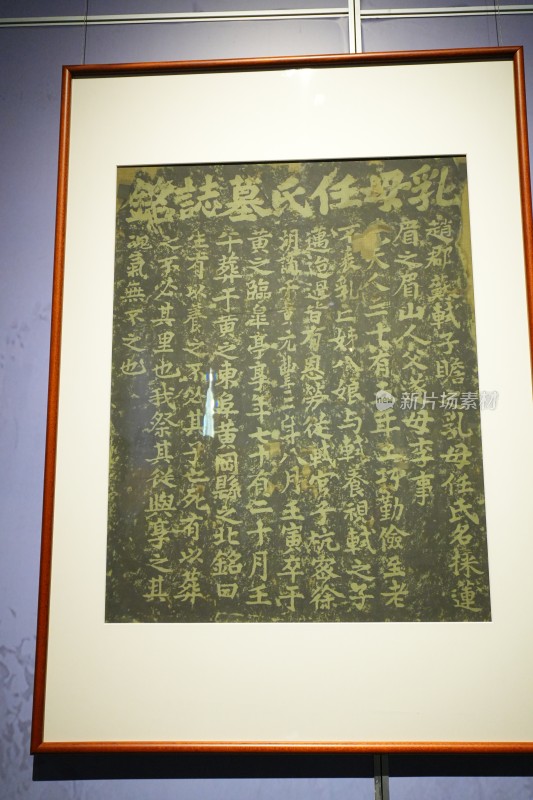 乳母任氏墓誌銘
趙郡蘇軾子瞻之乳母任氏名採蓮
眉之眉山人父遂母李事
夫人三十有五年工巧勤儉至老
不衰乳亡姊八娘与軾養視軾之子
邁迨過皆有恩勞從軾官于杭密徐
湖謫于黃元豐三年八月壬寅卒于
黃之臨皋亭享年七十有二十月壬
午葬于黃之東阜黃岡縣之北銘曰
生有以養之不必其子也死有以葬
之不必其里也我祭其從與享之其
魂氣無不之也
新片场素材